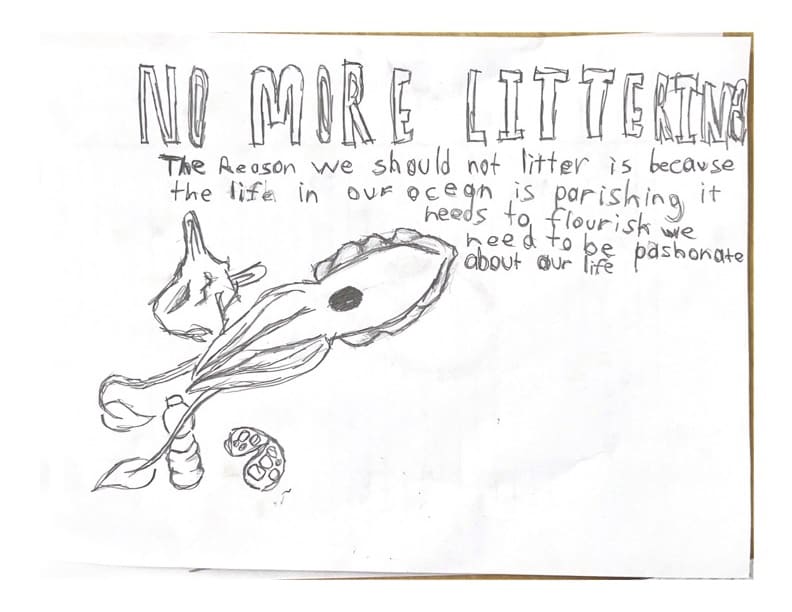 NO MORE LITTERING
The Reason we should not litter is because
the life in our ocean is parishing it
needs to flourish we
need to be pashonate
about our life